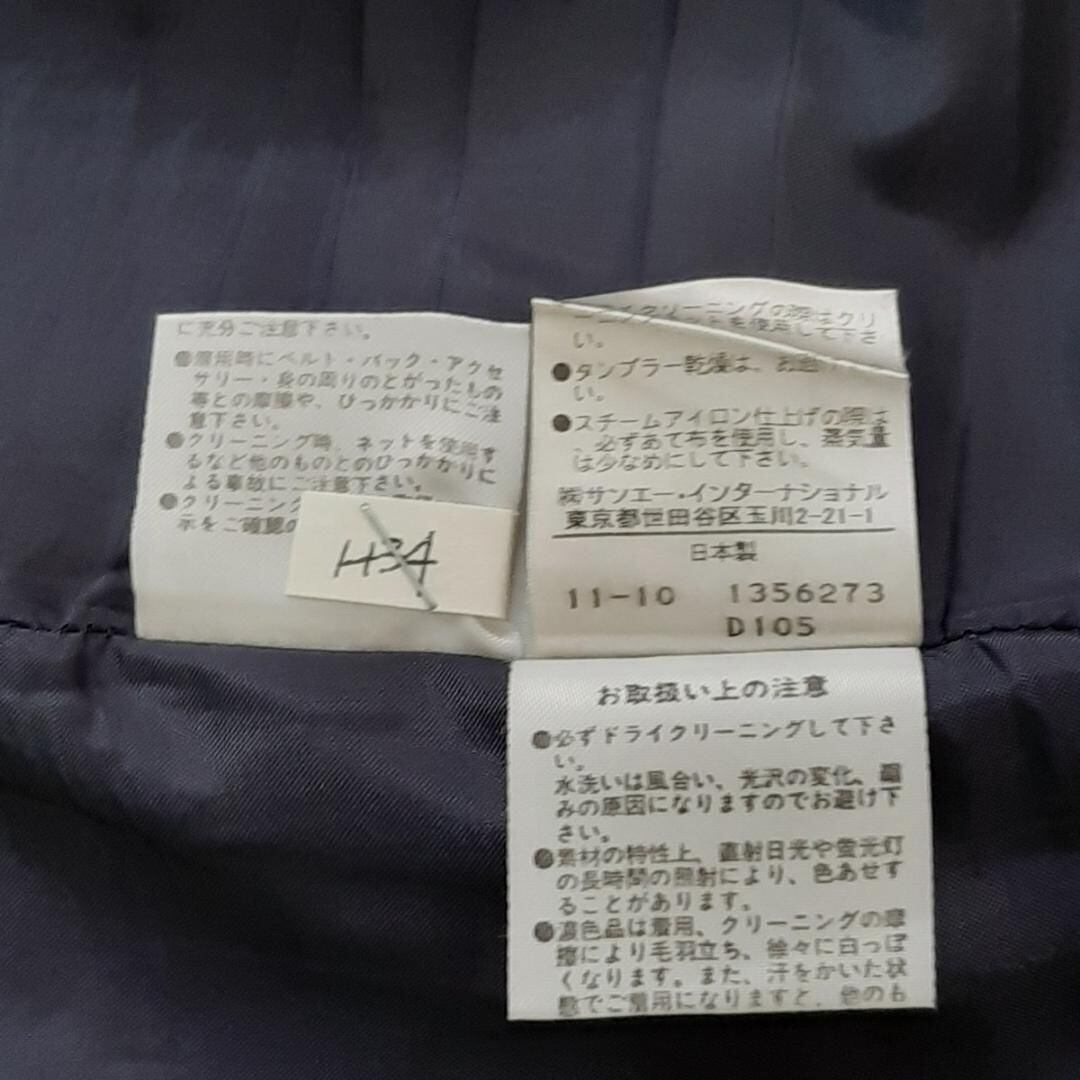 に充分ご注意下さい。
●着用時にベルト・バック・アクセ
サリー・身の周りのとがったもの
等との摩擦や、ひっかかりにご注
意下さい。
●クリーニング時、ネットを使用す
るなど他のものとのひっかかりに
よる事故にご注意下さい。
●クリーニング
示をご確認の
H34
ーニングの際はクリ
を使用して下さ
い。
●タンブラー乾燥は、お
い。
●スチームアイロン仕上げの際は
、必ずあて布を使用し、蒸気量
は少なめにして下さい。
㈱サンエー・インターナショナル
東京都世田谷区玉川2-21-1
日本製
11-10 1356273
D105
お取扱い上の注意
●必ずドライクリーニングして下さ
い。
水洗いは風合い、光沢の変化、縮
みの原因になりますのでお避け下
さい。
●素材の特性上、直射日光や蛍光灯
の長時間の照射により、色あせす
ることがあります。
●濃色品は着用、クリーニングの摩
擦により毛羽立ち、徐々に白っぽ
くなります。また、汗をかいた状
態でご着用になりますと、他のも